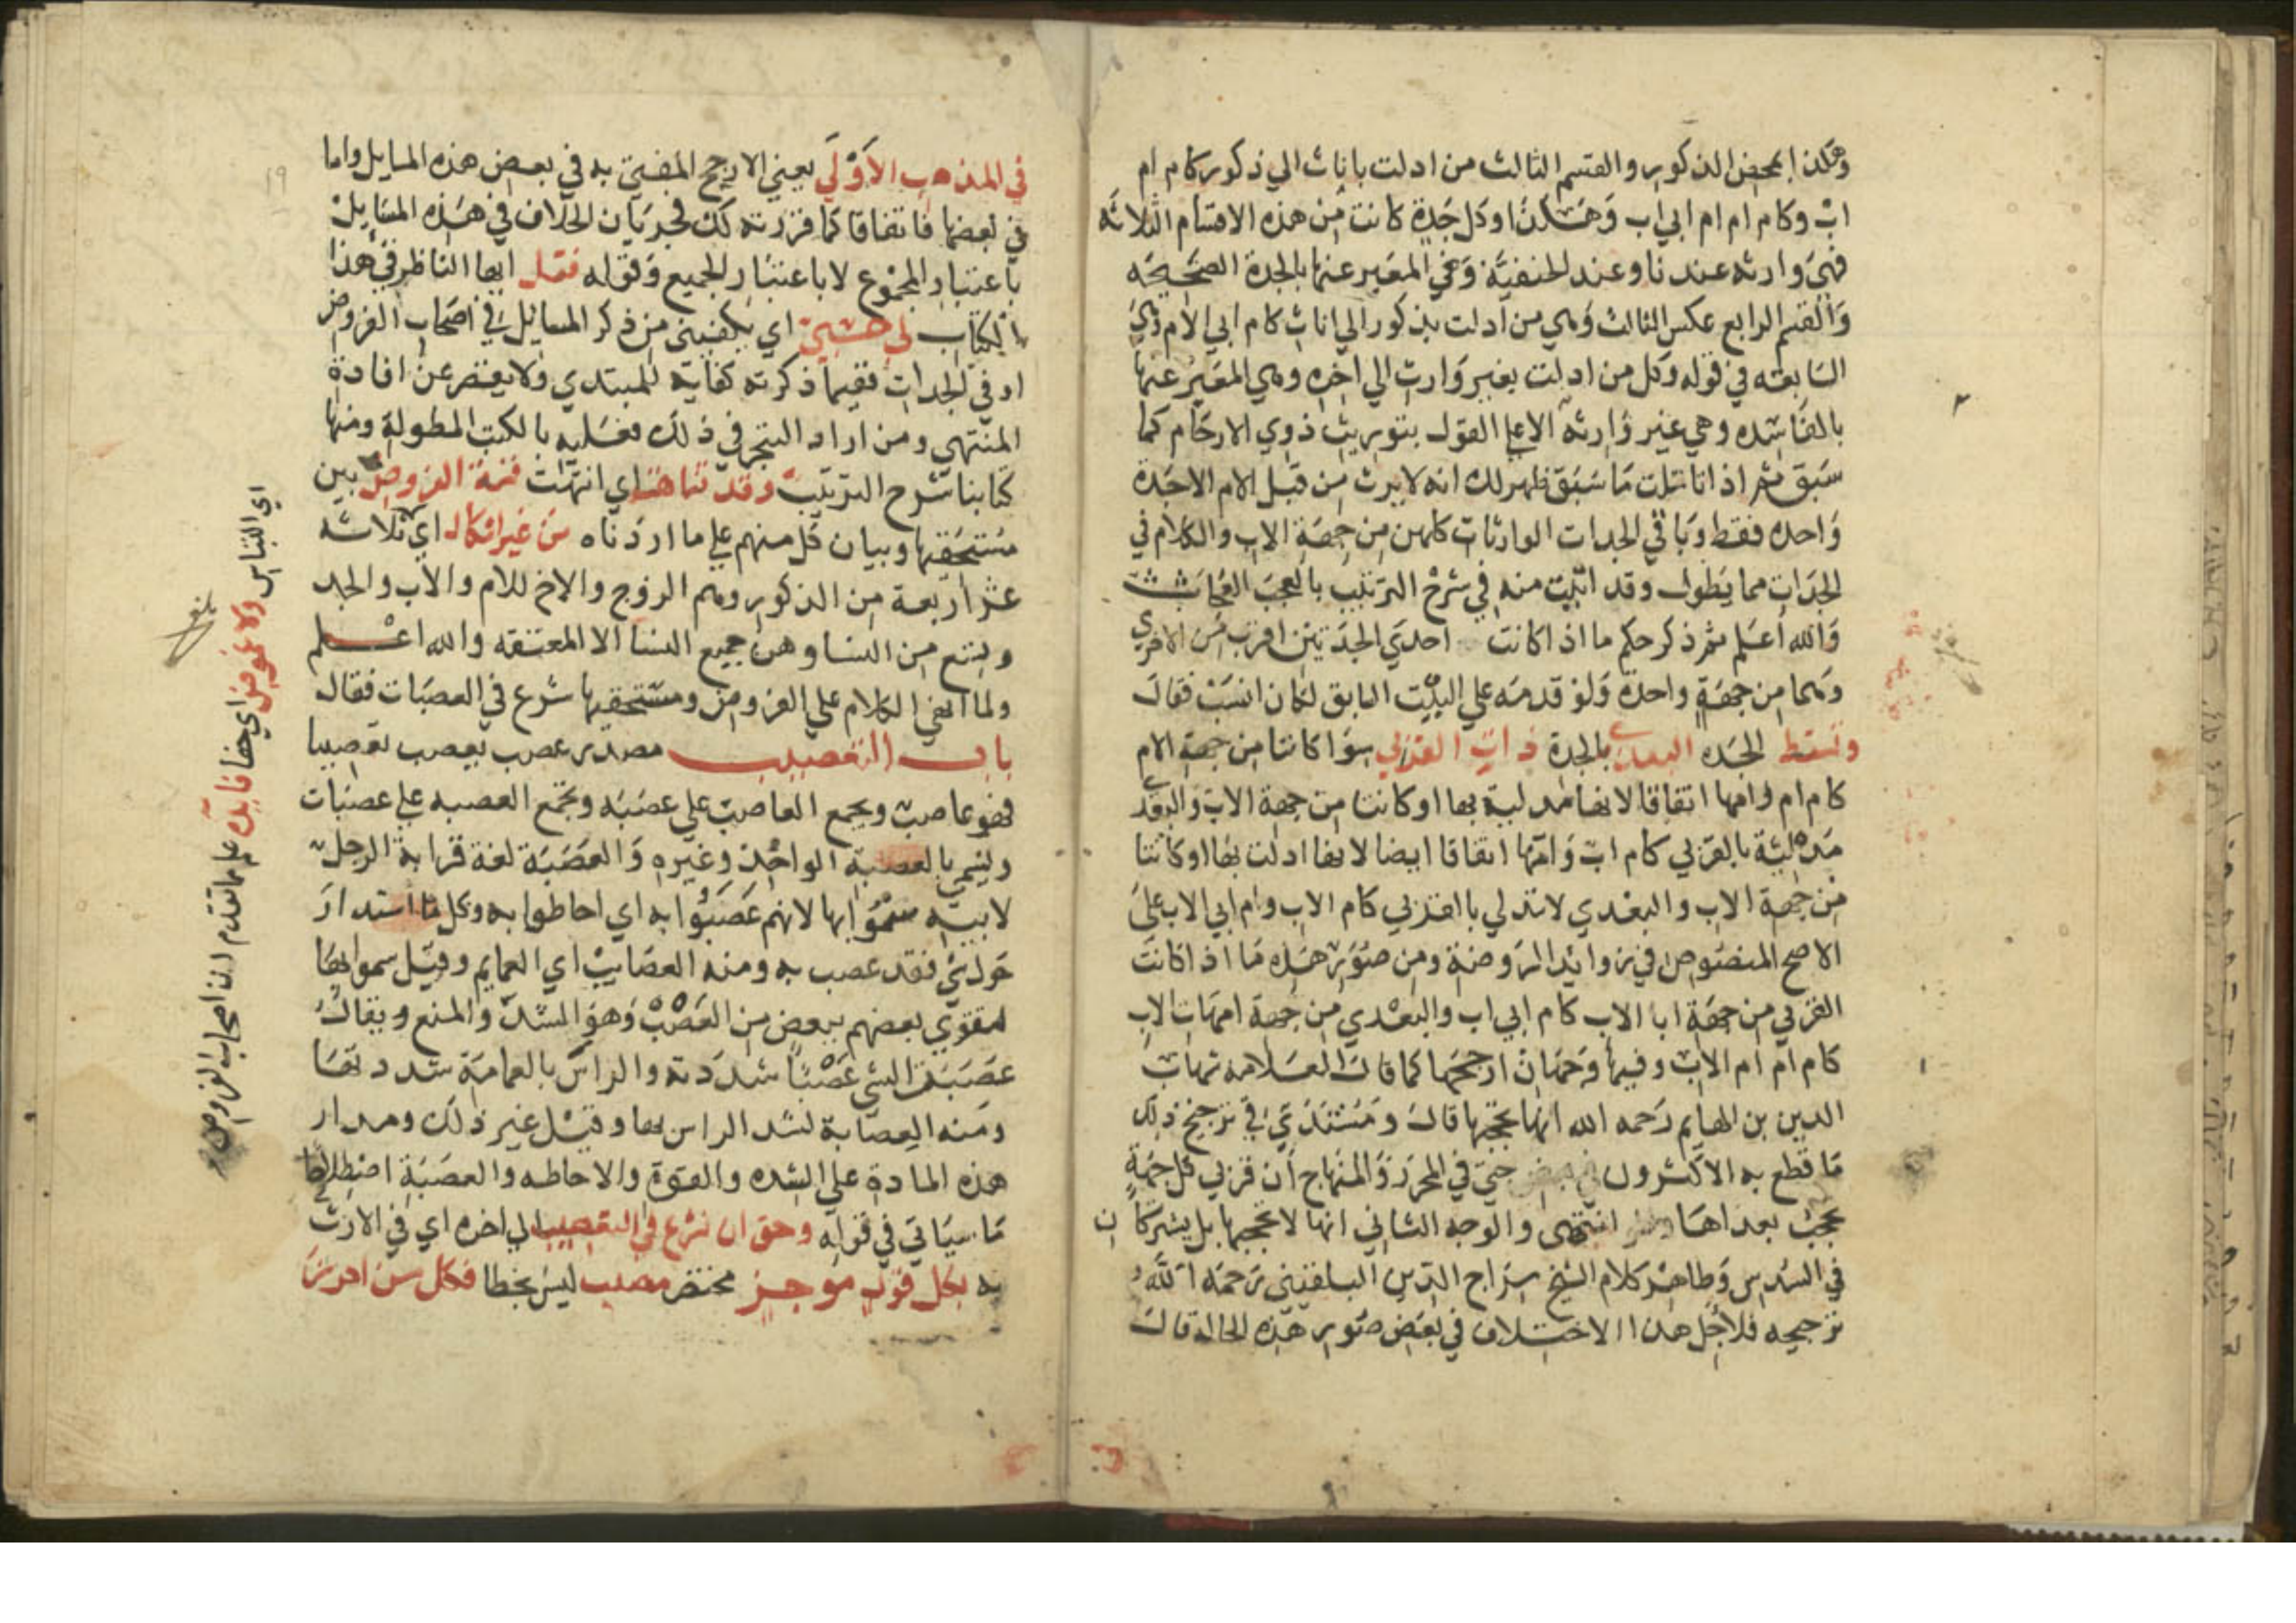 وهكذا بمحض الذكور والقسم الثالث من ادلت باناث الي ذكور كام ام
اب وكام ام ام ابي اب وهكذا وكل جدة كانت من هذه الاقسام الثلاثه
فهي وارثه عندنا وعند الحنفية وهي المعبر عنها بالجدة الصحيحه
والقسم الرابع عكس الثالث وهي من ادلت بذكور الي اناث كام ابي الام وهي
السابقه في قوله وكل من ادلت بغير وارث الي اخره وهي المعبر عنها
بالفاسده وهي غير وارثه الا علي القول بتوريث ذوي الارحام كما
سبق ثم اذا تاملت ما سبق ظهر لك انه لا يرث من قبل الام الا جدة
واحده فقط وباقي الجدات الوارثات كلهن من جهة الاب والكلام في
الجدات مما يطول وقد اتيت منه في شرح الترتيب بالعجب العجاب
والله اعلم ثم ذكر حكم ما اذا كانت احدي الجدتين اقرب من الاخري
وهما من جهة واحدة ولو قدمه علي البيت السابق لكان انسب فقال
وتسقط الجده البعدي بالجدة ذات القربي سوا كانتا من جهة الام
كام ام وامها اتفاقا لانها مدلية بها او كانتا من جهة الاب والبعدي
مدلية بالقربي كام اب وامها اتفاقا ايضا لانها ادلت بها او كانتا
من جهة الاب والبعدي لا تدلي بالقربي كام الاب وام ابي الاب علي
الاصح المنصوص في زوايد الروضة ومن صور هذه ما اذا كانت
القربي من جهة ابا الاب كام ابي اب والبعدي من جهة امهات الاب
كام ام ام الاب وفيها وجهان ارجحهما كما قال العلامه شهاب
الدين بن الهايم رحمه الله انها تحجبها قال ومستندي في ترجيح ذلك
ما قطع به الاكثرون حتي في المحرر والمنهاج ان قربي كل جهة
تحجب بعداها انتهي والوجه الثاني انها لا تحجبها بل يشتركان
في السدس وظاهر كلام الشيخ سراج الدين البلقيني رحمه الله
ترجيحه فلاجل هذا الاختلاف في بعض صور هذه الحاله قال
١٩
في المذهب الاولي يعني الارجح المفتي به في بعض هذه المسايل واما
في بعضها فاتفاقا كما قررته لك فجريان الخلاف في هذه المسايل
باعتبار المجموع لا باعتبار الجميع وقوله فقل ايها الناظر في هذا
الكتاب لي حسبي اي يكفيني من ذكر المسايل في اصحاب الفروض
او في الجدات ففيما ذكرته كفاية للمبتدي ولا يقصر عن افادة
المنتهي ومن اراد التبحر في ذلك فعليه بالكتب المطولة ومنها
كتابنا شرح الترتيب وقد تناهت اي انتهت قسمة الفروض بين
مستحقيها وبيان كل منهم علي ما اردناه من غير اشكال اي ثلاثه
عشر اربعة من الذكور وهم الزوج والاخ للام والاب والجد
وتسع من النسا وهن جميع النسا الا المعتقه والله اعلم
ولما انهي الكلام علي الفروض ومستحقيها شرع في العصبات فقال
باب التعصيب مصدر عصب يعصب تعصيبا
فهو عاصب ويجمع العاصب علي عصبه وتجمع العصبه علي عصبات
ويسمي بالعصبة الواحد وغيره والعصبة لغة قرابة الرجل
لابيه سموا بها لانهم عصبوا به اي احاطوا به وكل ما استدار
حول شي فقد عصب به ومنه العصايب اي العمايم وقيل سموا بها
لتقوي بعضهم ببعض من العصب وهو الشد والمنع ويقال
عصبت الشي عصبا شددته والراس بالعمامة شددتها
ومنه العصابة لشد الراس بها وقيل غير ذلك ومدار
هذه المادة علي الشده والقوة والاحاطه والعصبة اصطلاحا
ما سياتي في قوله وحق ان نشرع في التعصيب الي اخره اي في الارث
به بكل قول موجز مختصر مصيب ليس بخطا فكل من احرز
اي التباس ولا غموض اي خفا فايده علم مما تقدم ان اصحاب الفروض
بلغ